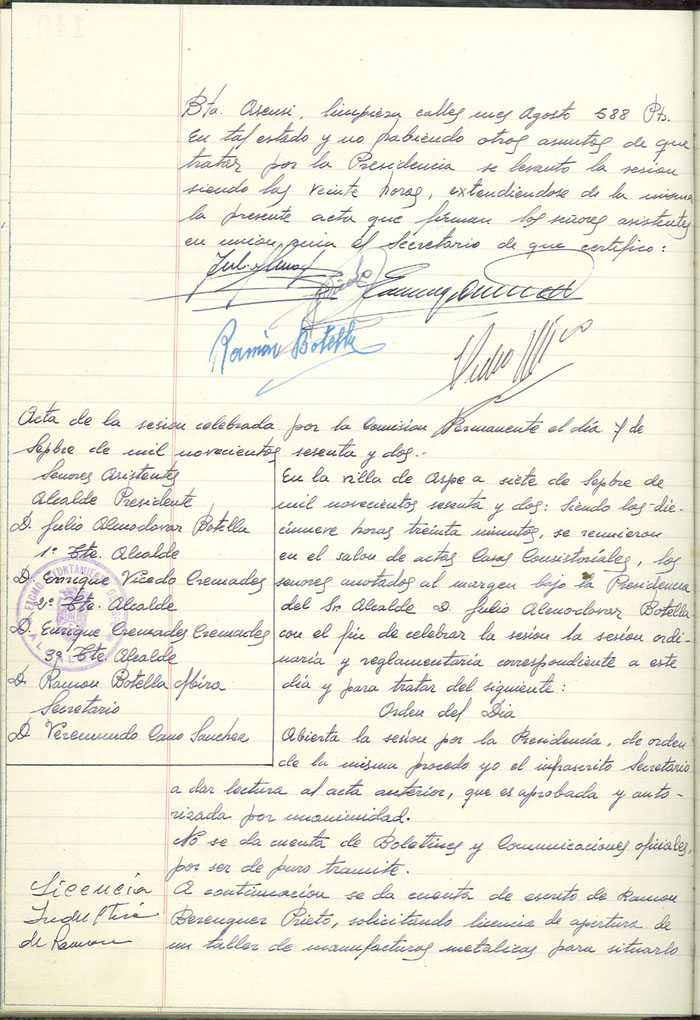 Bta. Asensi, limpieza calles mes Agosto 588 Pts.
En tal estado y no habiendo otros asuntos de que
tratar por la Presidencia se levanto la sesion
siendo las veinte horas, extendiendose de la misma
la presente acta que firman los señores asistentes
en union, el Secretario de que certifico:
Ramón Botella
Acta de la sesion celebrada por la Comision Permanente el día 7 de
Sepbre de mil novecientos sesenta y dos.-
Señores Asistentes
Alcalde Presidente
D. Julio Almodovar Botella
1º Tte. Alcalde
D. Enrique Vicedo Cremades
2º Tte. Alcalde
D. Enrique Cremades Cremades
3º Tte Alcalde
D. Ramon Botella Mira
Secretario
D. Veremundo Cano Sanchez
En la villa de Aspe a siete de Sepbre de
mil novecientos sesenta y dos: Siendo las die-
cinueve horas treinta minutos, se reunieron
en el salon de actos Casas Consistoriales, los
señores anotados al margen bajo la Presidencia
del Sr. Alcalde D. Julio Almodovar Botella
con el fin de celebrar la sesion la sesion ordi-
naria y reglamentaria correspondiente a este
día y para tratar del siguiente:
Orden del Dia
Abierta la sesion por la Presidencia, de orden
de la misma procedo yo el infrascrito Secretario
a dar lectura al acta anterior, que es aprobada y auto-
rizada por unanimidad.
No se da cuenta de Boletines y Comunicaciones oficiales,
por ser de puro tramite.
Licencia
Industria
de Ramon
A continuacion se da cuenta de escrito de Ramon
Berenguer Prieto, solicitando licencia de apertura de
un taller de manufacturas metalicas para situarlo